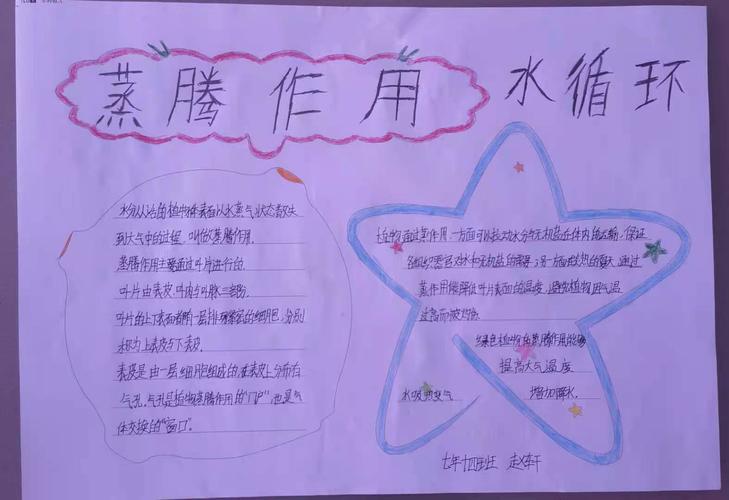 蒸腾作用 水循环
水分从活的植物体表面以水蒸气状态散失
到大气中的过程，叫做蒸腾作用.
蒸腾作用主要通过叶片进行的.
叶片由表皮、叶肉与叶脉三部分.
叶片的上下表面都有一层排列紧密的细胞，分别
称为上表皮与下表皮.
表皮是由一层细胞组成的.在表皮上分布有
气孔.气孔是植物蒸腾作用的“门户”，也是气
体交换的“窗口”.
植物通过蒸作用，一方面可以拉动水分与无机盐在体内的运输，保证
各组织器官对水和无机盐的需要；另一方面在炎热的夏天，通过
蒸作用能降低叶片表面的温度，避免植物因气温
过高而被灼伤.
绿色植物在蒸腾作用能够
提高大气温度
增加降水.
水吸变气
七年十四班 赵轩